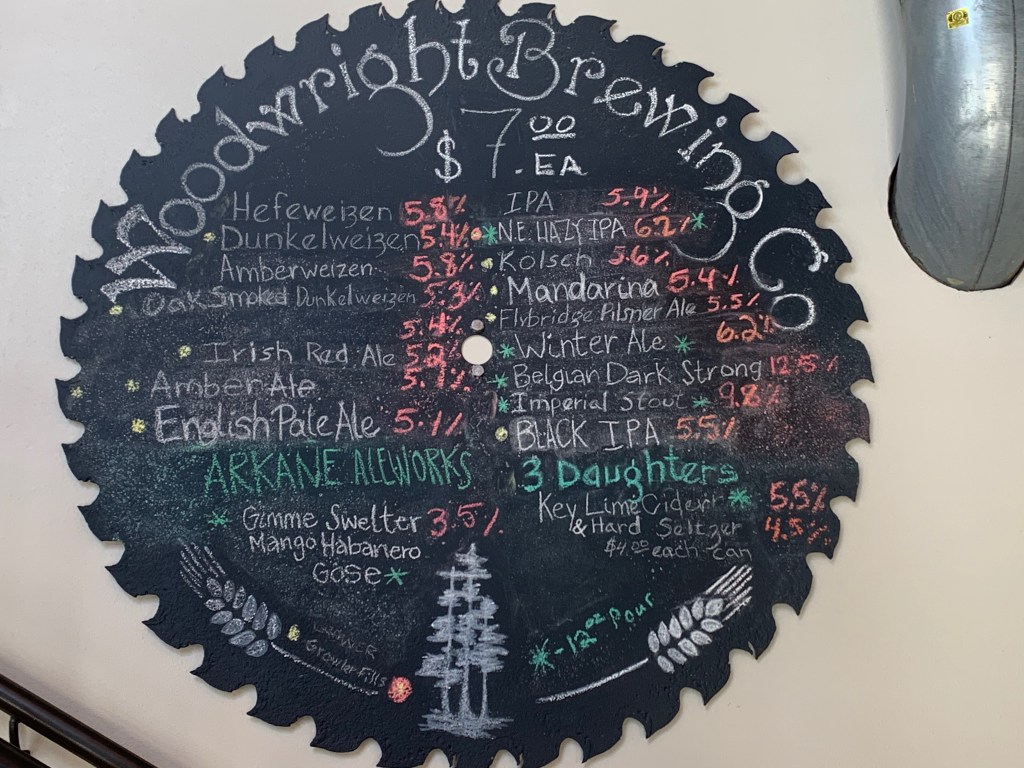 Woodwright Brewing Co
$7.00 EA
Hefeweizen 5.8%
Dunkelweizen 5.4%
Amberweizen 5.8%
Oak Smoked Dunkelweizen 5.3%
5.4%
Irish Red Ale 5.2%
Amber Ale
English Pale Ale 5.1%
ARKANE ALEWORKS
Gimme Swelter 3.5%
Mango Habanero
Gose
Growler Fills
IPA 5.9%
N.E. HAZY IPA 6.2%
Kolsch 5.6%
Mandarina 5.4%
Flybridge Pilsner Ale 5.5%
Winter Ale 6.2%
Belgian Dark Strong
Imperial Stout 9.8%
BLACK IPA 5.5%
3 Daughters
Key Lime Cider 5.5%
& Hard Seltzer 4.5%
$4.00 each can
* - 12oz Pour